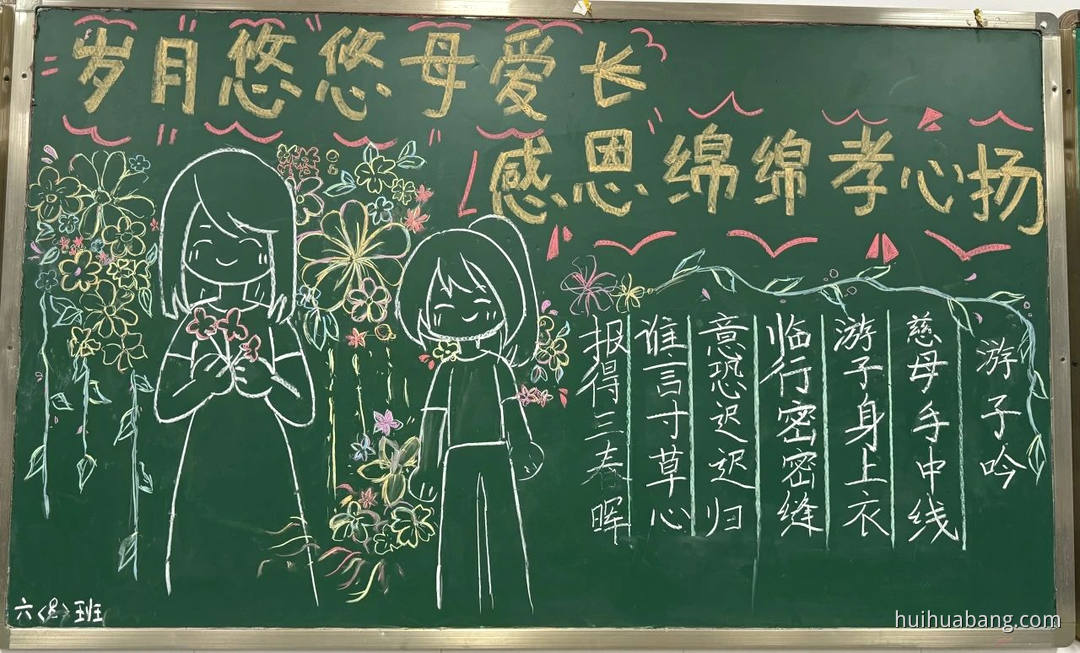 岁月悠悠母爱长
感恩绵绵孝心扬
游子吟
慈母手中线
游子身上衣
临行密密缝
意恐迟迟归
谁言寸草心
报得三春晖
六<8>班
huihuabang.com